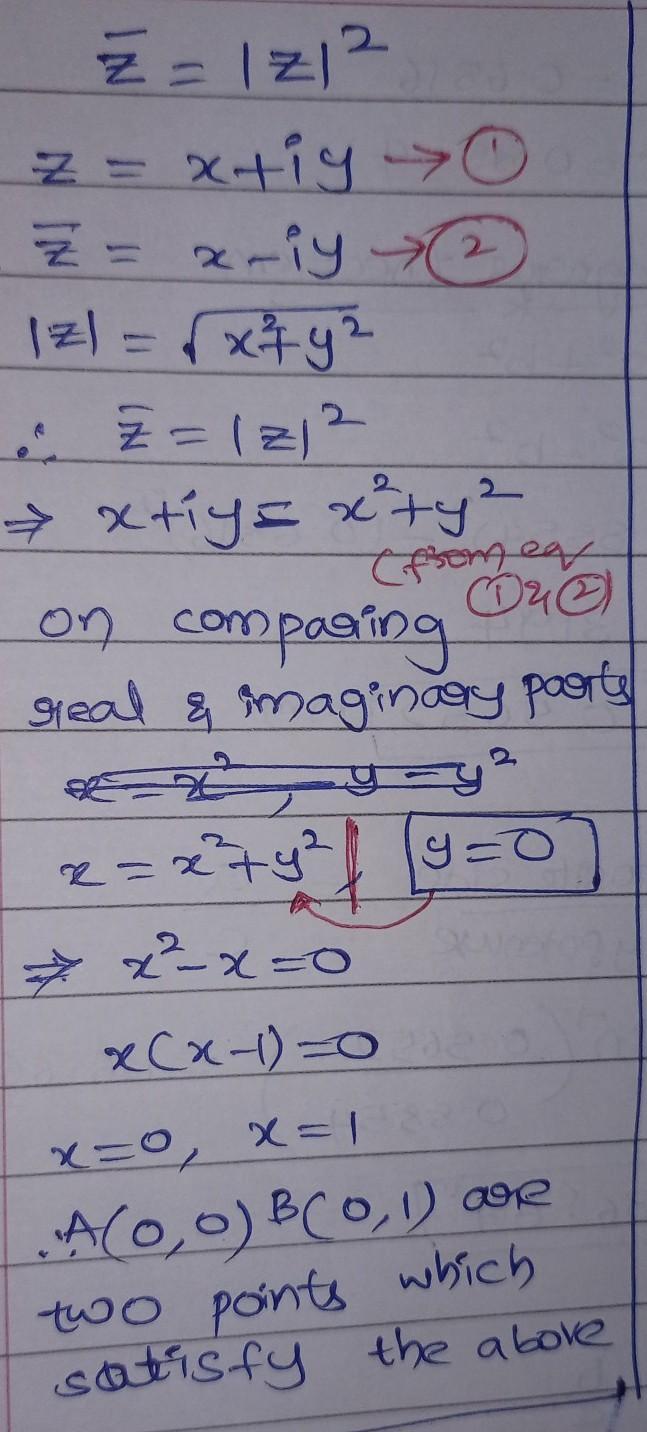 z̄ = |z|²
z = x+iy → ①
z̄ = x-iy → ②
|z| = √x²+y²
∴ z̄ = |z|²
⇒ x+iy = x²+y²
(from eq
① & ②)
on comparing
real & imaginary parts
x = x², y = y²
x = x²+y² | y=0
⇒ x²-x=0
x(x-1)=0
x=0, x=1
∴ A(0,0) B(0,1) are
two points which
satisfy the above